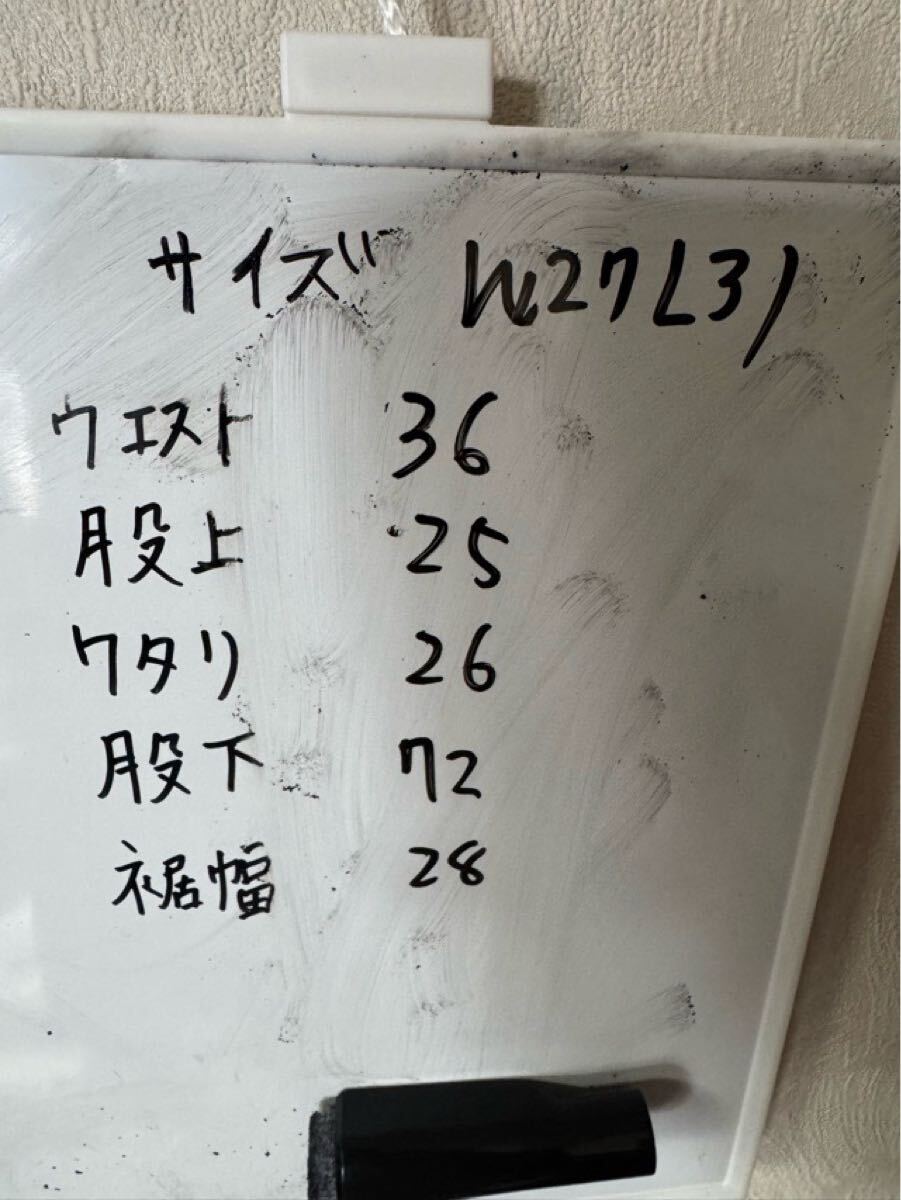 サイズ W27(3)
ウエスト 36
股上 25
ワタリ 26
股下 72
裾幅 28